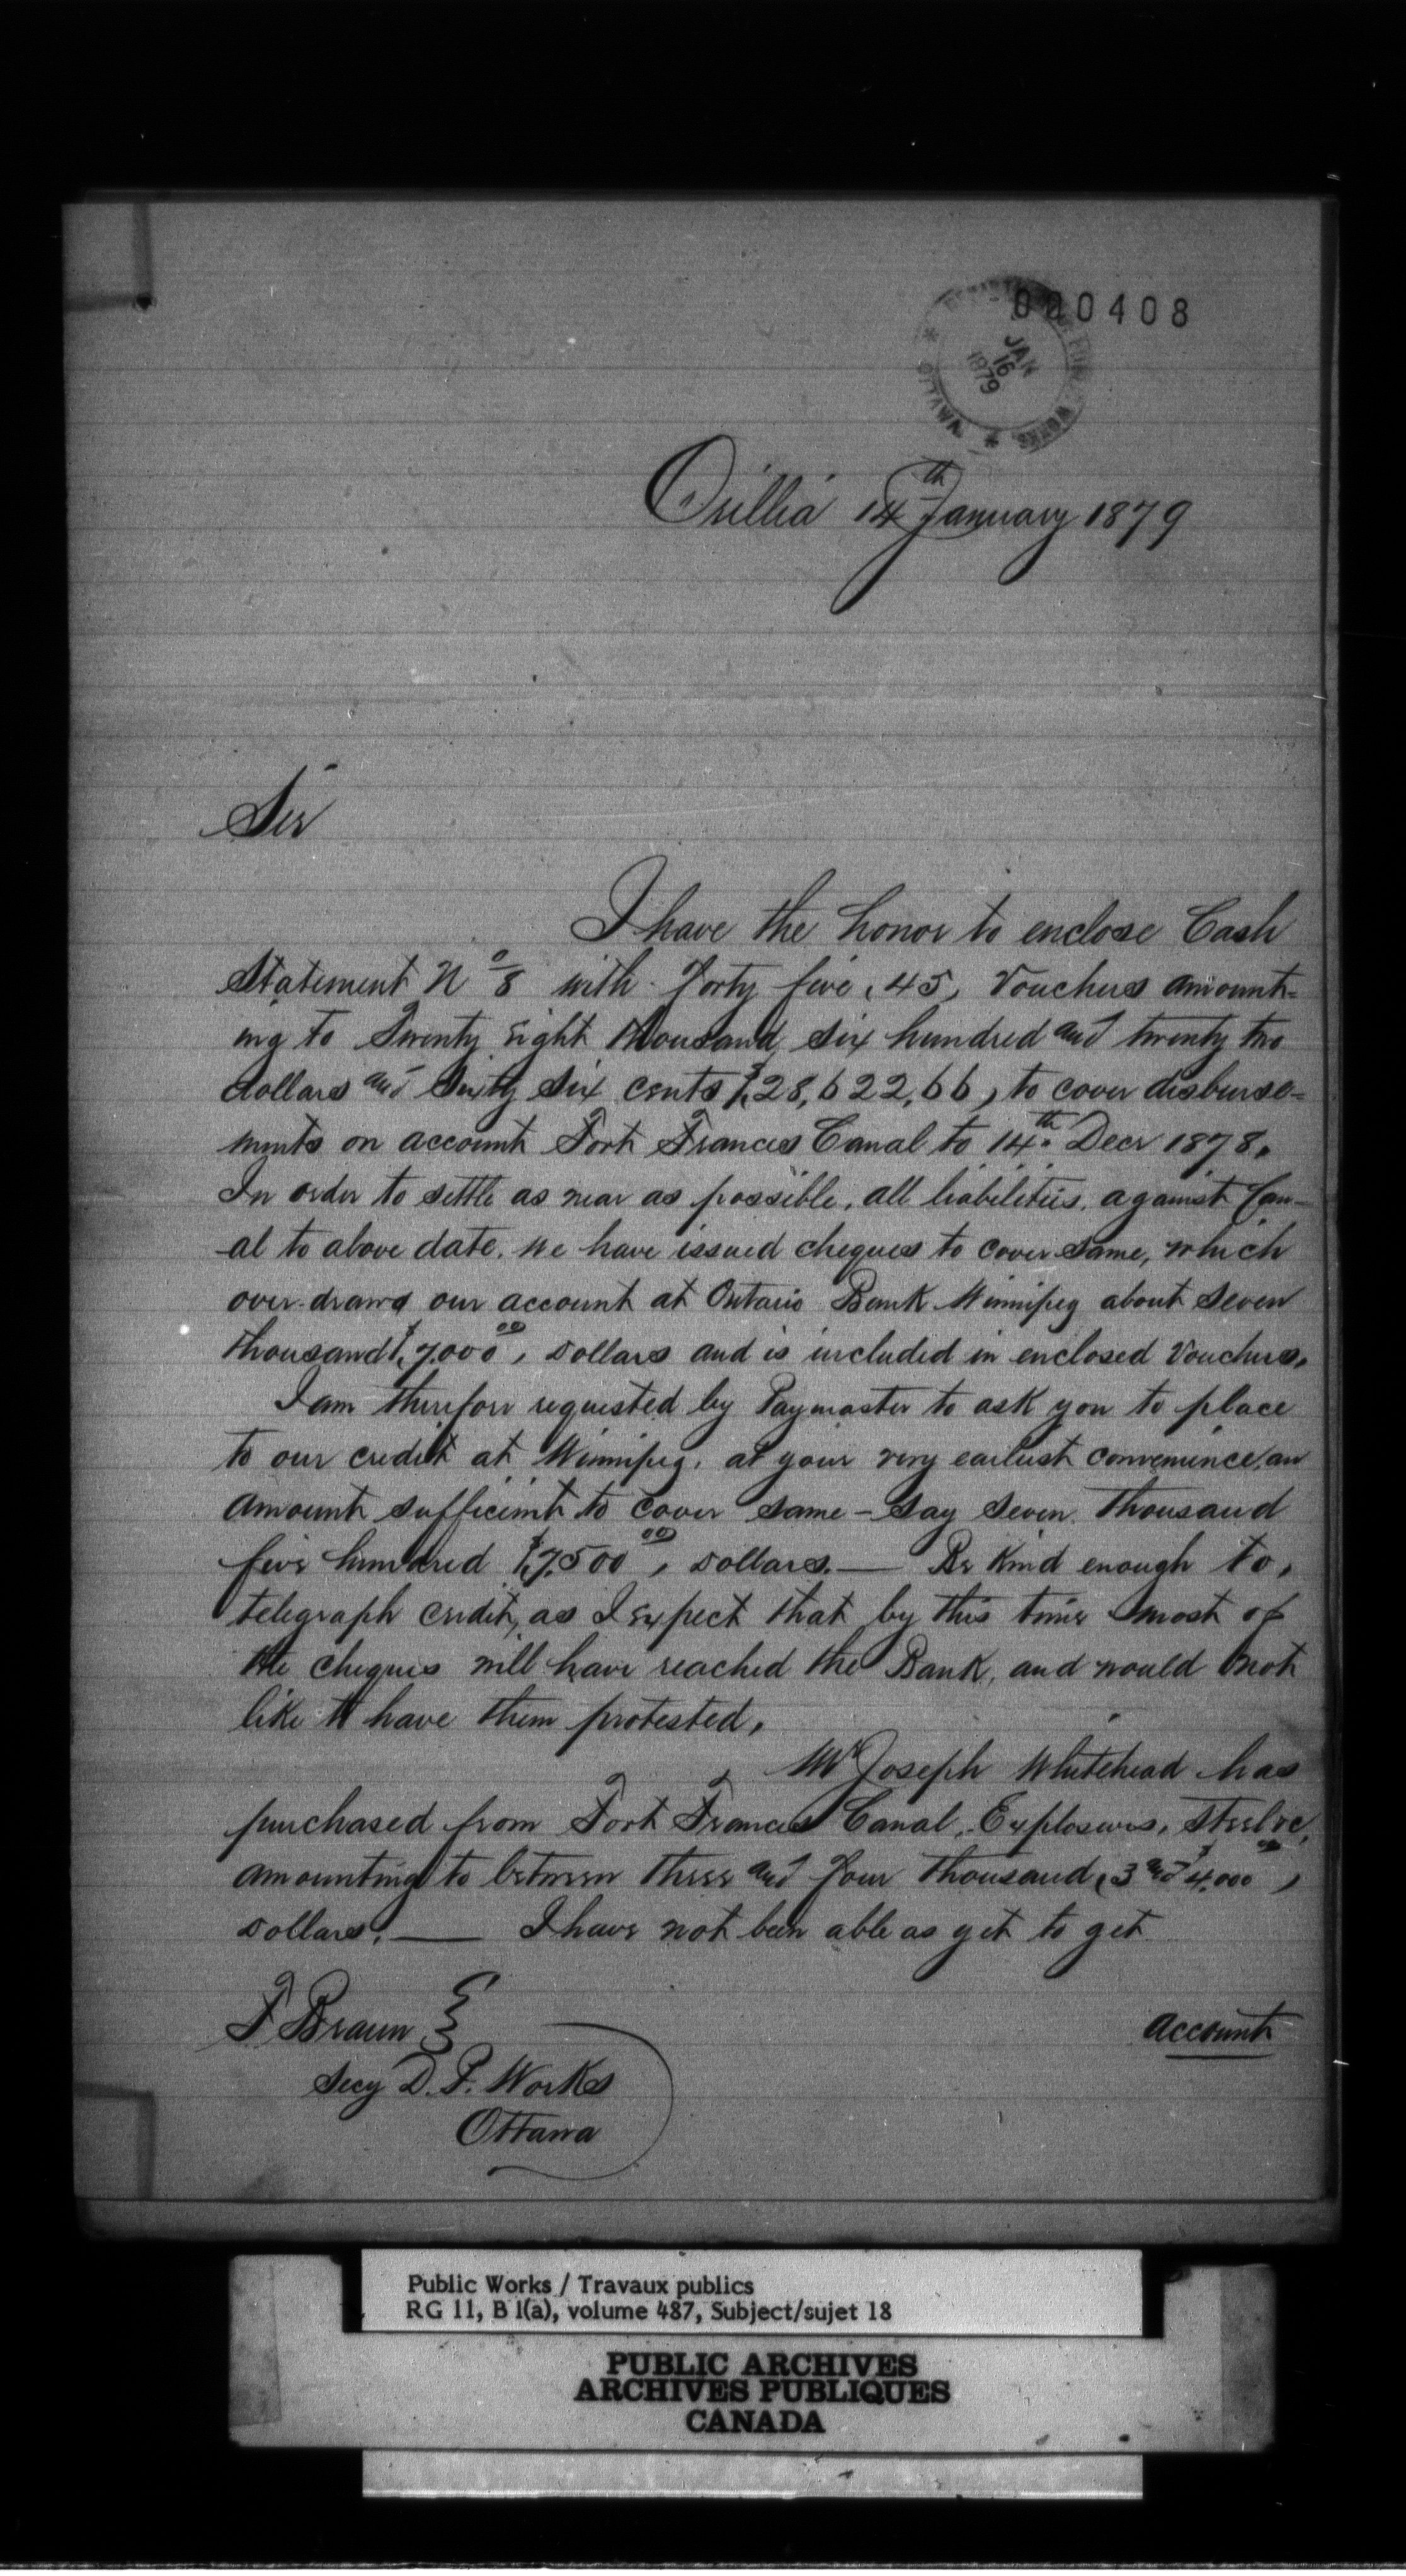 000408
DEPARTMENT OF PUBLIC WORKS * OTTAWA *
JAN
16
1879
Orillia 14th January 1879
Sir
I have the honor to enclose Cash
Statement No 8 with forty five (45) Vouchers amount=
ing to Twenty Eight thousand six hundred and twenty two
dollars and Sixty Six cents ($28,622,66) to cover disburse=
ments on account Fort Frances Canal to 14th Decr 1878.
In order to settle as near as possible, all liabilities, against Can-
al to above date, we have issued cheques to cover same, which
over-drawd our account at Ontario Bank Winnipeg about Seven
thousand ($7,000 00) Dollars and is included in enclosed Vouchers.
I am therefore requested by Paymaster to ask you to place
to our credit at Winnipeg, at your very earliest convenience, an
amount sufficient to cover same - say Seven Thousand
five hundred ($7,500 00) Dollars. — Be Kind enough to,
telegraph credit, as I expect that by this time most of
the cheques will have reached the Bank, and would not
like to have them protested.
Mr Joseph Whitehead has
purchased from Fort Frances Canal, Explosives, Steel &c,
amounting to between three and four thousand (3 and $4,000 00)
Dollars. — I have not been able as yet to get
account
F Braun
Secy D. P. Works
Ottawa
Public Works / Travaux publics
RG 11, B 1(a), volume 487, Subject/sujet 18
PUBLIC ARCHIVES
ARCHIVES PUBLIQUES
CANADA